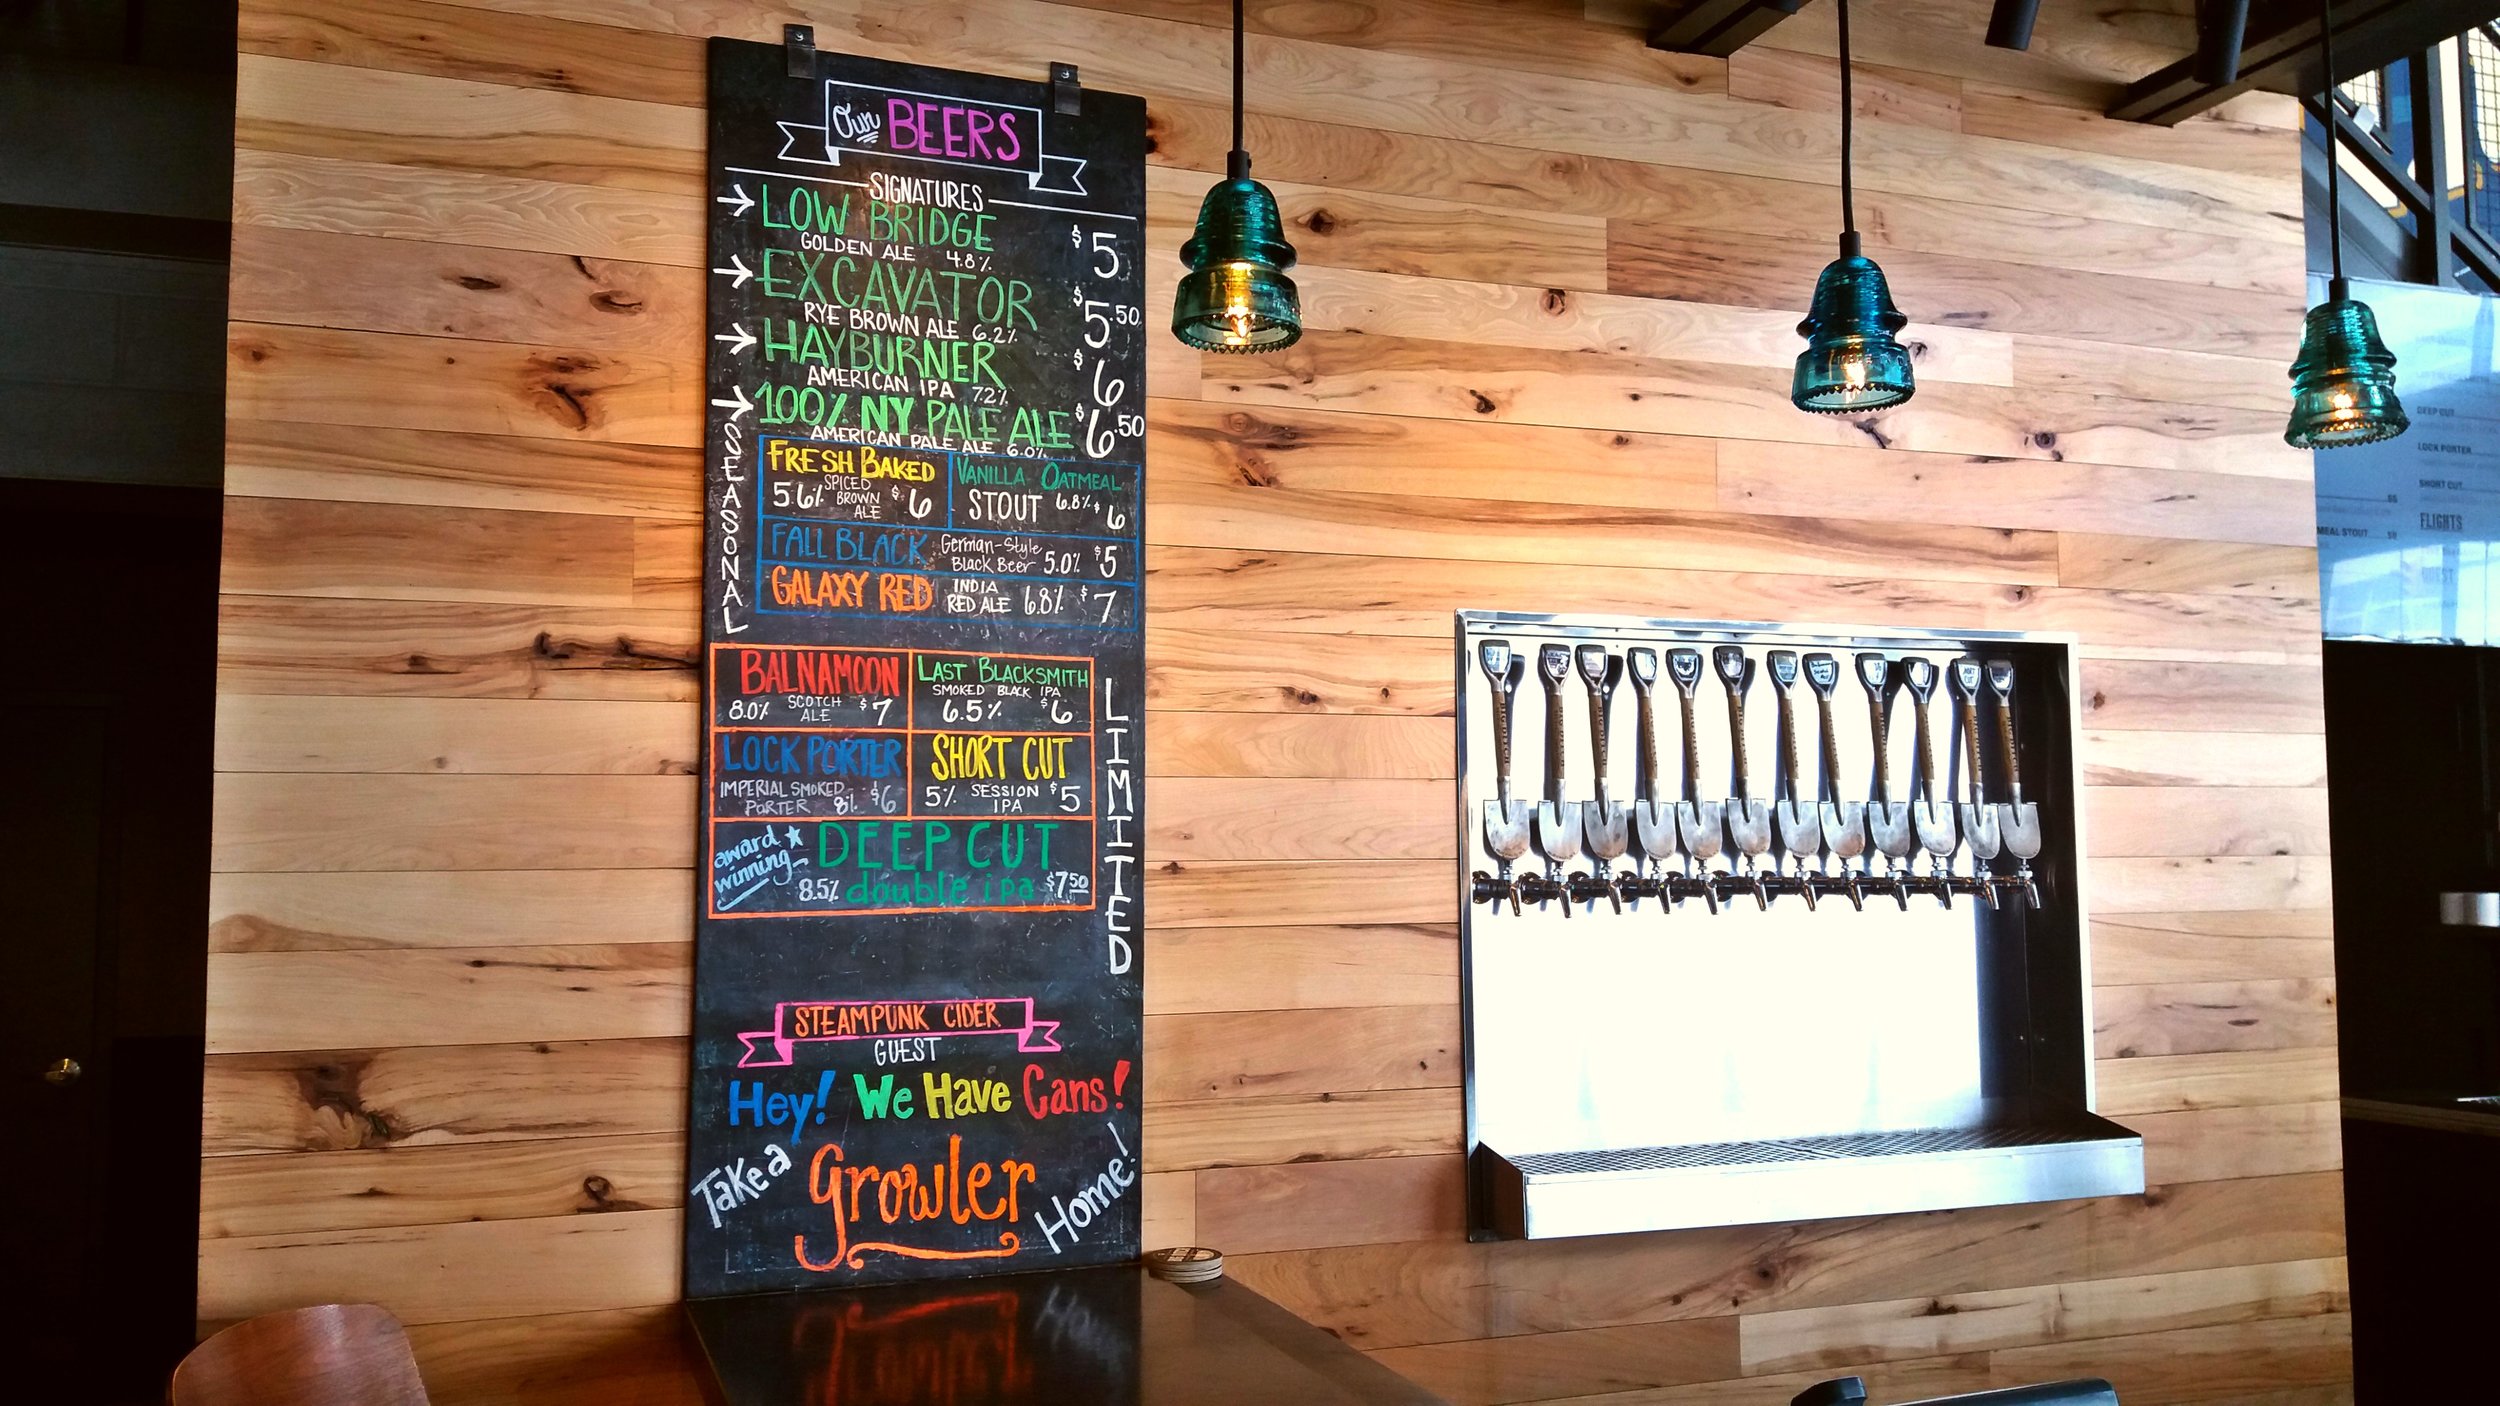 Our BEERS
SIGNATURES
→ LOW BRIDGE $5
GOLDEN ALE 4.8%
→ EXCAVATOR $5.50
RYE BROWN ALE 6.2%
→ HAYBURNER $6
AMERICAN IPA 7.2%
→ 100% NY PALE ALE $6.50
AMERICAN PALE ALE 6.0%
SEASONAL
FRESH BAKED
5.6% SPICED BROWN ALE $6
VANILLA OATMEAL
STOUT 6.8% $6
FALL BLACK German-Style Black Beer 5.0% $5
GALAXY RED INDIA RED ALE 6.8% $7
LIMITED
BALNAMOON
8.0% SCOTCH ALE $7
LAST BLACKSMITH
SMOKED BLACK IPA
6.5% $6
LOCK PORTER
IMPERIAL SMOKED PORTER 8% $6
SHORT CUT
5% SESSION IPA $5
award winning DEEP CUT
8.5% double ipa $7.50
STEAMPUNK CIDER
GUEST
Hey! We Have Cans!
Take a growler Home!
DEEP CUT
LOCK PORTER
SHORT CUT
FLIGHTS
MEAL STOUT